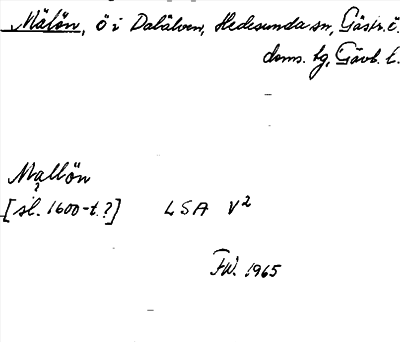 Mälön, ö i Dalälven, Hedesunda sn, Gästr. ö.
doms. tg, Gävl. l.
Mallön
?
[sl. 1600-t.?] LSA V²
FW. 1965